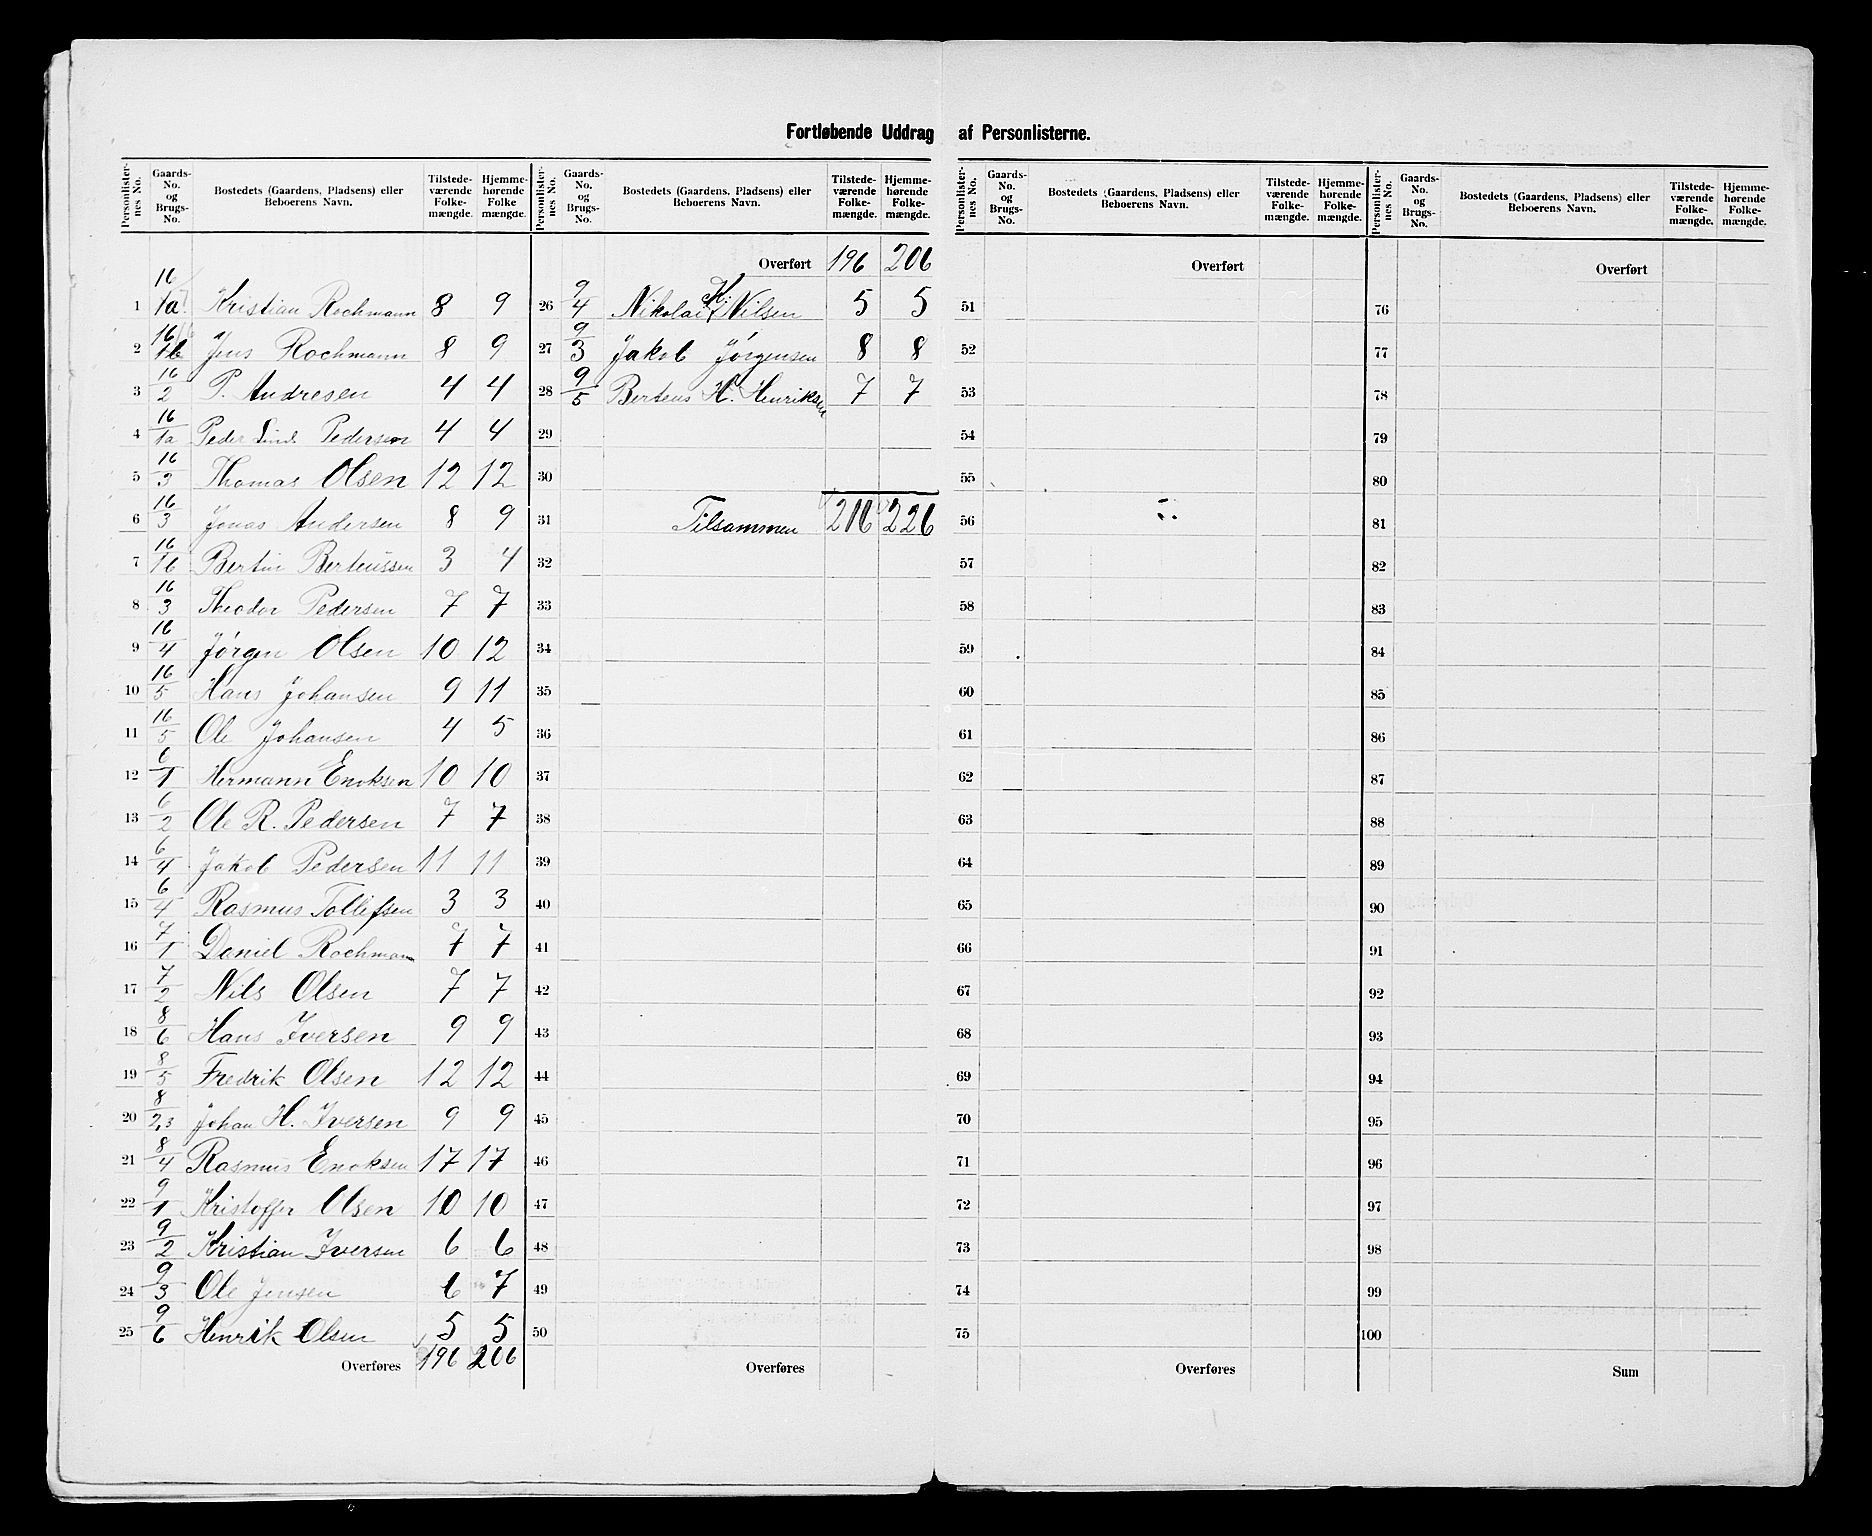 Fortløbende Uddrag af Personlisterne.
Personlister-nes No. Gaards-No. og Brugs-No. Bostedets (Gaardens, Pladsens) eller Beboerens Navn. Tilstede-værende Folke-mængde. Hjemme-hørende Folke mængde.
1 16/1a Kristian Rochmann 8 9
2 16/1b Jens Rochmann 8 9
3 16/2 P. Andresen 4 4
4 16/1a Peder Lind. Pedersen 4 4
5 16/3 Thomas Olsen 12 12
6 16/3 Jonas Andersen 8 9
7 16/1b Bertin Berteussen 3 4
8 16/3 Theodor Pedersen 7 7
9 16/4 Jørgen Olsen 10 12
10 16/5 Hans Johansen 9 11
11 16/5 Ole Johansen 4 5
12 6/1 Hermann Enoksen 10 10
13 6/2 Ole R. Pedersen 7 7
14 6/4 Jakob Pedersen 11 11
15 6/4 Rasmus Tollefsen 3 3
16 7/1 Daniel Rochmann 7 7
17 7/2 Nils Olsen 7 7
18 8/6 Hans Iversen 9 9
19 8/5 Fredrik Olsen 12 12
20 8/2,3 Johan H. Iversen 9 9
21 8/4 Rasmus Enoksen 17 17
22 9/1 Kristoffer Olsen 10 10
23 9/2 Kristian Iversen 6 6
24 9/3 Ole Jensen 6 7
25 9/6 Henrik Olsen 5 5
Overføres 196 206
Personlister-nes No. Gaards-No. og Brugs-No. Bostedets (Gaardens, Pladsens) eller Beboerens Navn. Tilstede-værende Folke-mængde. Hjemme-hørende Folke-mængde.
Overført 196 206
26 9/4 Nikolai K. Nilsen 5 5
27 9/3 Jakob Jørgensen 8 8
28 9/5 Berteus H. Henriksen 7 7
29
30
31 Tilsammen 216 226
32
33
34
35
36
37
38
39
40
41
42
43
44
45
46
47
48
49
50
Overføres
Personlister-nes No. Gaards-No. og Brugs-No. Bostedets (Gaardens, Pladsens) eller Beboerens Navn. Tilstede-værende Folke-mængde. Hjemme-hørende Folke-mængde.
Overført
51
52
53
54
55
56
57
58
59
60
61
62
63
64
65
66
67
68
69
70
71
72
73
74
75
Overføres
Personlister-nes No. Gaards-No. og Brugs-No. Bostedets (Gaardens, Pladsens) eller Beboerens Navn. Tilstede-værende Folke-mængde. Hjemme-hørende Folke-mængde.
Overført
76
77
78
79
80
81
82
83
84
85
86
87
88
89
90
91
92
93
94
95
96
97
98
99
100
Sum